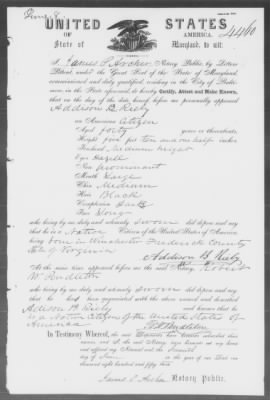 June 8
UNITED STATES
OF AMERICA.
4460
State of Maryland, to wit:
I James S. Archer Notary Public, by Letters
Patent, under the Great Seal of the State of Maryland,
commissioned and duly qualified, residing in the City of Balti-
more, in the State aforesaid, do hereby Certify, Attest and Make Known,
that on the day of the date hereof before me personally appeared
Addison B
an American Citizen
Aged forty years or thereabouts,
Height five feet ten and one half inches
Forehead
Eyes Hazell
Nose prominant
Mouth Large
Chin Medium
Hair Black
Complexion Dark
Face Long
who being by me duly and solemnly Sworn did depose and say
that he is a Native Citizen of the United States of America,
being born in Winchester Frederick County
State of Virginia
Addison B
At the same time appeared before me the said Notary Robert
W. Pendleton
who being by me duly and solemnly Sworn did depose and say
that he had been acquainted with the above named and described
Addison B and knows that he
is a Native Citizen of the United States of
America
R W Pendleton
In Testimony Whereof, the said
and I the said Notary have hereunto set my hand
and affixed my Notarial Seal the
day of June in the year of our Lord one
thousand eight hundred and fifty
James S. Archer Notary Public.